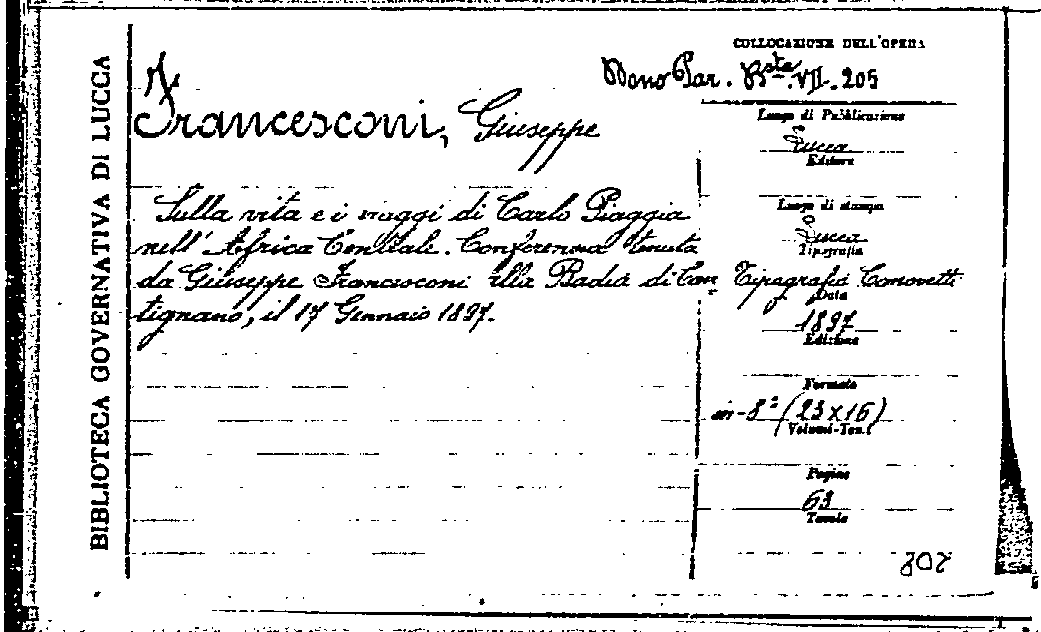 BIBLIOTECA GOVERNATIVA DI LUCCA
Francesconi, Giuseppe
Sulla vita e i viaggi di Carlo Piaggia
nell'Africa Centrale. Conferenza tenuta
da Giuseppe Francesconi alla Badia di Can
tignano, il 17 Gennaio 1897.
COLLOCAZIONE DELL'OPERA
Bsta. VII. 205
Luogo di Pubblicazione
Lucca
Editore
Luogo di stampa
Lucca
Tipografia
Tipografia
Data
1897
Edizione
Formato
in-8° (23x16)
Volumi-Tom.
Pagine
63
Tavole